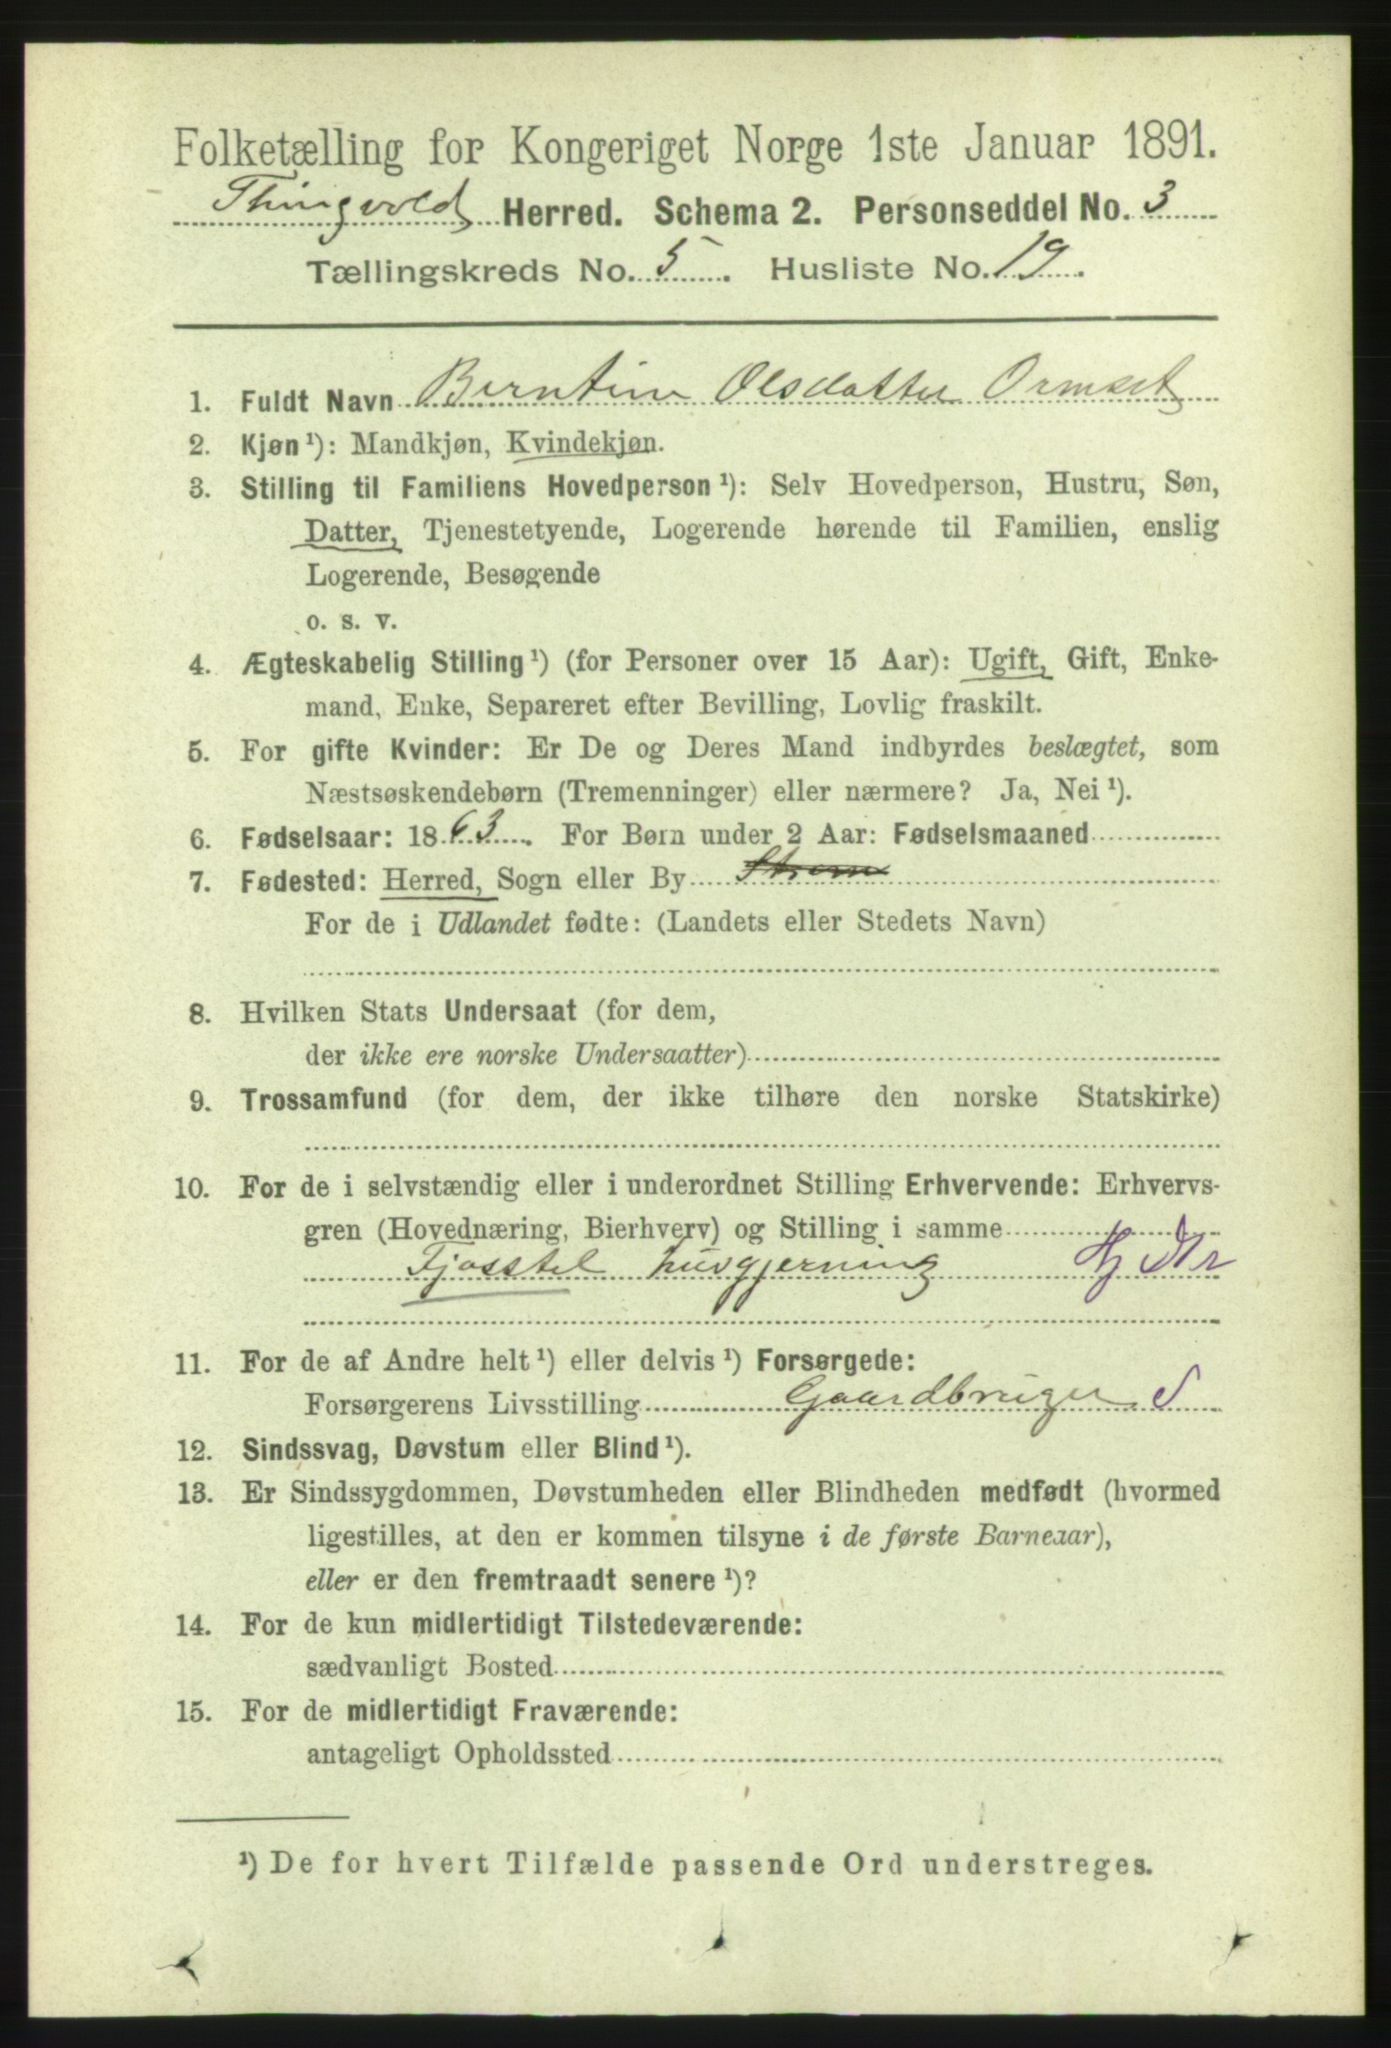 Folketælling for Kongeriget Norge 1ste Januar 1891.
Thingvold Herred. Schema 2. Personseddel No. 3
Tællingskreds No. 5. Husliste No. 19.
1. Fuldt Navn Berntine Olsdatter Ormset
2. Kjøn ¹): Mandkjøn, Kvindekjøn.
3. Stilling til Familiens Hovedperson ¹): Selv Hovedperson, Hustru, Søn,
Datter, Tjenestetyende, Logerende hørende til Familien, enslig
Logerende, Besøgende
o. s. v.
4. Ægteskabelig Stilling ¹) (for Personer over 15 Aar): Ugift, Gift, Enke-
mand, Enke, Separeret efter Bevilling, Lovlig fraskilt.
5. For gifte Kvinder: Er De og Deres Mand indbyrdes beslægtet, som
Næstsøskendebørn (Tremenninger) eller nærmere? Ja, Nei ¹).
6. Fødselsaar: 1863. For Børn under 2 Aar: Fødselsmaaned
7. Fødested: Herred, Sogn eller By
For de i Udlandet fødte: (Landets eller Stedets Navn)
8. Hvilken Stats Undersaat (for dem,
der ikke ere norske Undersaatter)
9. Trossamfund (for dem, der ikke tilhøre den norske Statskirke)
10. For de i selvstændig eller i underordnet Stilling Erhvervende: Erhvervs-
gren (Hovednæring, Bierhverv) og Stilling i samme
Fjosstel husgjerning
11. For de af Andre helt ¹) eller delvis ¹) Forsørgede:
Forsørgerens Livsstilling Gaardbruger S
12. Sindssvag, Døvstum eller Blind ¹).
13. Er Sindssygdommen, Døvstumheden eller Blindheden medfødt (hvormed
ligestilles, at den er kommen tilsyne i de første Barneaar),
eller er den fremtraadt senere ¹)?
14. For de kun midlertidigt Tilstedeværende:
sædvanligt Bosted
15. For de midlertidigt Fraværende:
antageligt Opholdssted
¹) De for hvert Tilfælde passende Ord understreges.